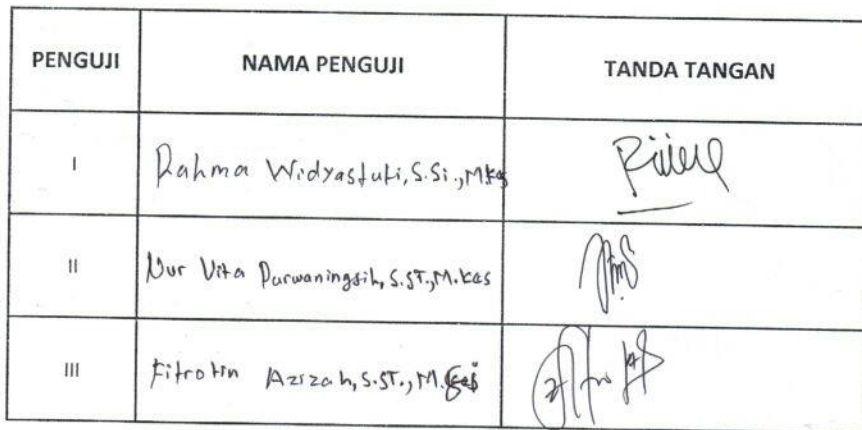 PENGUJI NAMA PENGUJI TANDA TANGAN
I Rahma Widyastuti, S.Si., M.Kes
II Nur Vita Purwaningsih, S.ST., M.Kes
III Fitrotin Azizah, S.ST., M.